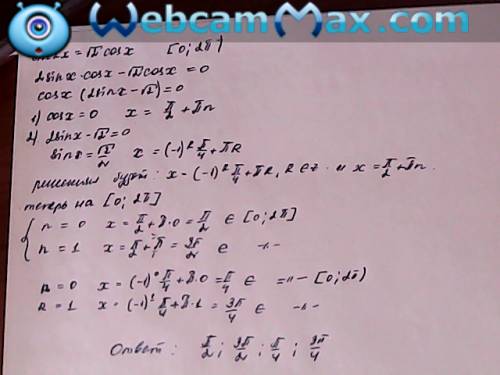 WebcamMax.com
sin2x = √2 cosx [0; 2π]
2sinx·cosx − √2cosx = 0
cosx (2sinx − √2) = 0
1) cosx = 0 x = π/2 + πn
2) 2sinx − √2 = 0
sinx = √2/2 x = (-1)^k π/4 + πk
решения будут: x = (-1)^k π/4 + πk, k ∈ z и x = π/2 + πn.
теперь на [0; 2π]
n = 0 x = π/2 + π·0 = π/2 ∈ [0; 2π]
n = 1 x = π/2 + π = 3π/2 ∈ -"-
k = 0 x = (-1)^0 π/4 + π·0 = π/4 ∈ -"- [0; 2π)
k = 1 x = (-1)^1 π/4 + π·1 = 3π/4 ∈ -"-
Ответ: π/2; 3π/2; π/4; 3π/4